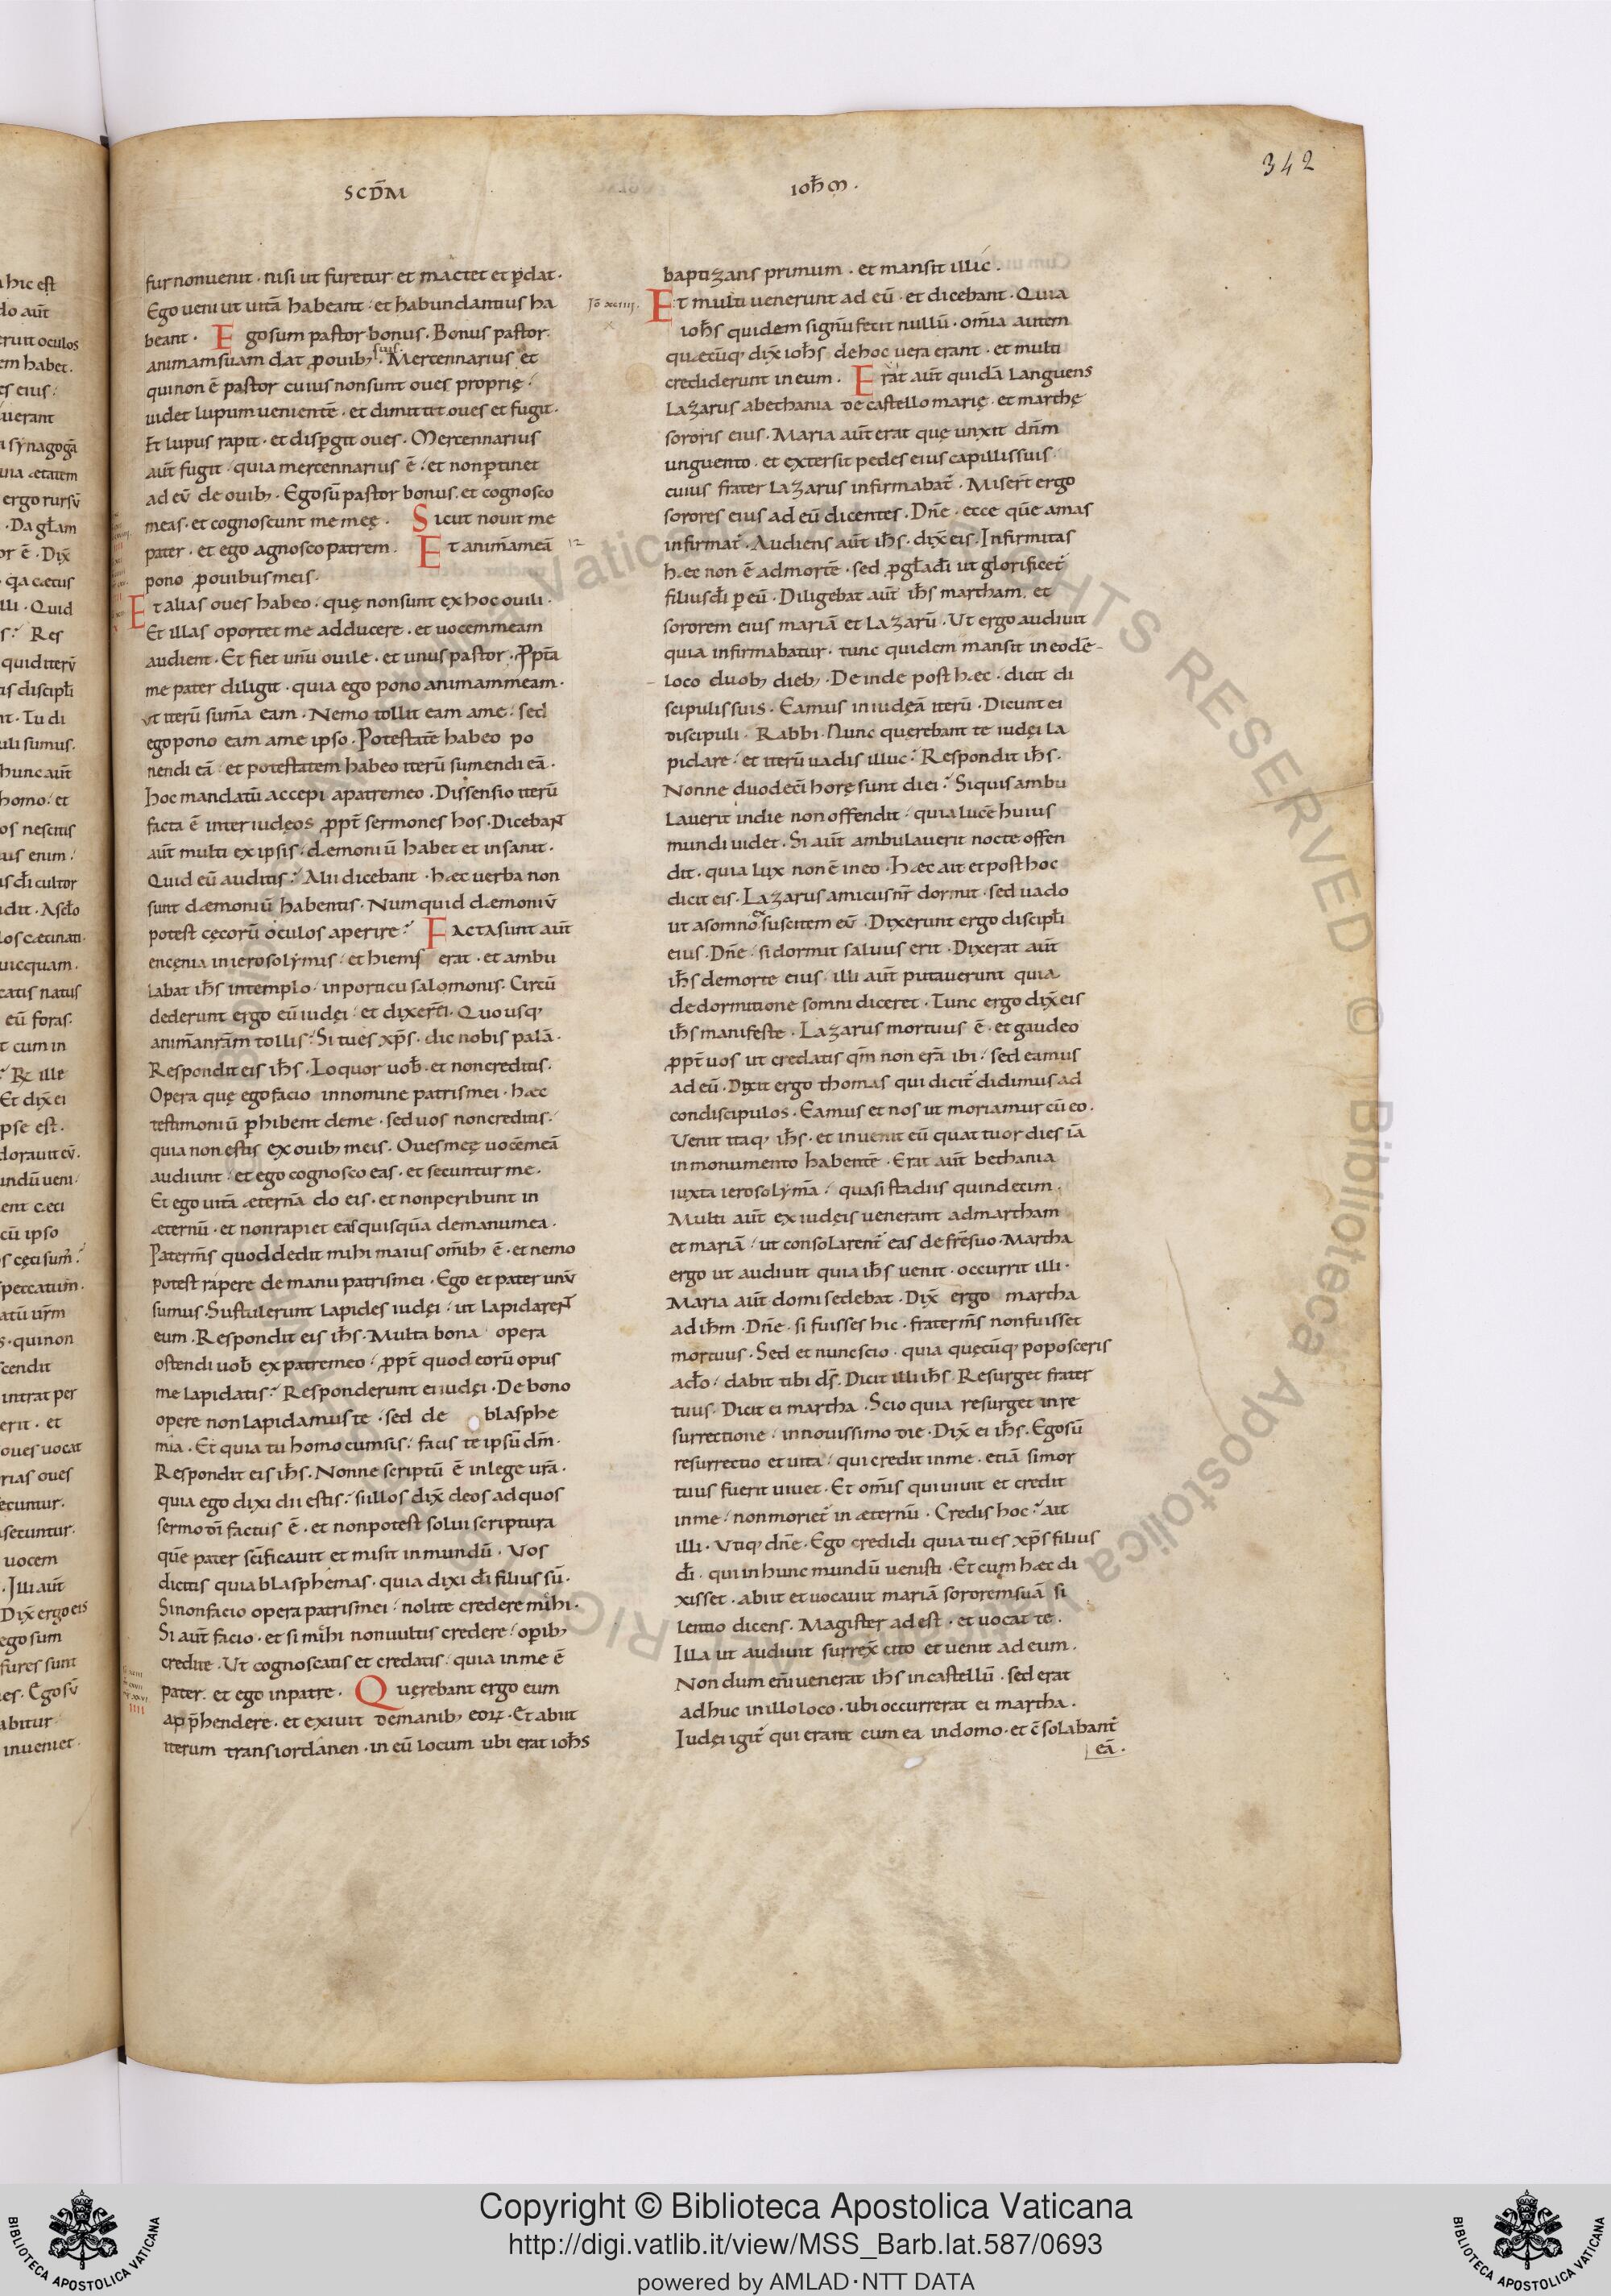 342
SCD̄M
IOH̄M.
fur non uenit · nisi ut furetur et mactet et ꝑdat ·
Ego ueni ut uitā habeant · et habundantius ha
beant · Ego sum pastor bonus · Bonus pastor
animam suam dat ꝓ ouib; suis · Mercennarius et
qui non ē pastor cuius non sunt oues proprię ·
uidet lupum uenientē · et dimittit oues et fugit ·
Et lupus rapit · et dispergit oues · Mercennarius
aut̄ fugit quia mercennarius ē · et non ꝑtinet
ad eū de ouib; · Ego sū pastor bonus · et cognosco
meas · et cognoscunt me meę · Sicut nouit me
pater · et ego agnosco patrem · Et animā meā
pono ꝓ ouibus meis ·
Et alias oues habeo · quę non sunt ex hoc ouili ·
Et illas oportet me adducere · et uocem meam
audient · Et fiet unū ouile · et unus pastor · Ꝓpt̄a
me pater diligit · quia ego pono animam meam ·
ut iterū sumā eam · Nemo tollit eam a me · sed
ego pono eam a me ipso · Potestatē habeo po
nendi eā · et potestatem habeo iterū sumendi eā ·
Hoc mandatū accepi a patre meo · Dissensio iterū
facta ē inter iudęos ꝓpt̄ sermones hos · Dicebant
aut̄ multi ex ipsis · dæmoniū habet et insanit ·
Quid eū auditis? Alii dicebant · hæc uerba non
sunt dæmoniū habentis · Numquid dæmoniū
potest cęcorū oculos aperire? Facta sunt aut̄
encęnia in ierosolymis · et hiems erat · et ambu
labat ih̄s in templo · in porticu salomonis · Circū
dederunt ergo eū iudęi · et dixer̄ ei · Quousq;
animā nr̄am tollis? Si tu es xp̄s · dic nobis palā ·
Respondit eis ih̄s · Loquor uob̄ · et non creditis ·
Opera quę ego facio in nomine patris mei · hæc
testimoniū ꝑhibent de me · sed uos non creditis ·
quia non estis ex ouib; meis · Oues meę uocē meā
audiunt · et ego cognosco eas · et secuntur me ·
Et ego uitā æternā do eis · et non peribunt in
æternū · et non rapiet eas quisquā de manu mea ·
Pater m̄s quod dedit mihi maius omīb; ē · et nemo
potest rapere de manu patris mei · Ego et pater unū
sumus · Sustulerunt lapides iudęi · ut lapidarent
eum · Respondit eis ih̄s · Multa bona opera
ostendi uob̄ ex patre meo · ꝓpt̄ quod eorū opus
me lapidatis? Responderunt ei iudęi · De bono
opere non lapidamus te · sed de blasphe
mia · Et quia tu homo cum sis · facis te ipsū dm̄ ·
Respondit eis ih̄s · Nonne scriptū ē in lege ur̄a ·
quia ego dixi dii estis? si illos dix̄ deos ad quos
sermo dī factus ē · et non potest solui scriptura
quē pater scīficauit et misit in mundū · Vos
dicitis quia blasphemas · quia dixi dī filius sū ·
Si non facio opera patris mei · nolite credere mihi ·
Si aut̄ facio · et si mihi non uultis credere · oꝑib;
credite · Ut cognoscatis et credatis · quia in me ē
pater · et ego in patre · Quęrebant ergo eum
app̄hendere · et exiuit de manib; eoꝝ · Et abiit
iterum trans iordanen · in eū locum ubi erat ioh̄s
baptizans primum · et mansit illic ·
Et multi uenerunt ad eū · et dicebant · Quia
ioh̄s quidem signū fecit nullū · omīa autem
quæcūq; dix̄ ioh̄s de hoc uera erant · et multi
crediderunt in eum · Erat aut̄ quidā languens
lazarus a bethania de castello marię · et marthę
sororis eius · Maria aut̄ erat quę unxit dn̄m
unguento · et extersit pedes eius capillis suis ·
cuius frater lazarus infirmabat̄ · Miser̄t ergo
sorores eius ad eū dicentes · Dn̄e · ecce quē amas
infirmat̄ · Audiens aut̄ ih̄s · dix̄ eis · Infirmitas
hæc non ē ad mortē · sed ꝓ gl̄a dī ut glorificet̄
filius dī ꝑ eū · Diligebat aut̄ ih̄s martham · et
sororem eius mariā et lazarū · Ut ergo audiuit
quia infirmabatur · tunc quidem mansit in eodē
loco duob; dieb; · Deinde post hæc · dicit di
scipulis suis · Eamus in iudęā iterū · Dicunt ei
discipuli · Rabbi · Nunc querebant te iudęi la
pidare · et iterū uadis illuc? Respondit ih̄s ·
Nonne duodecī horę sunt diei? Si quis ambu
lauerit in die non offendit · quia lucē huius
mundi uidet · Si aut̄ ambulauerit nocte offen
dit · quia lux non ē in eo · Hæc ait et post hoc
dicit eis · Lazarus amicus nr̄ dormit · sed uado
ut a somno suscitem eū · Dixerunt ergo discipl̄i
eius · Dn̄e · si dormit saluus erit · Dixerat aut̄
ih̄s de morte eius · illi aut̄ putauerunt quia
de dormitione somni diceret · Tunc ergo dix̄ eis
ih̄s manifeste · Lazarus mortuus ē · et gaudeo
ꝓpt̄ uos ut credatis qm̄ non erā ibi · sed eamus
ad eū · Dixit ergo thomas qui dicit̄ didimus ad
condiscipulos · Eamus et nos ut moriamur cū eo ·
Venit itaq; ih̄s · et inuenit eū quattuor dies iā
in monumento habentē · Erat aut̄ bethania
iuxta ierosolymā · quasi stadiis quindecim ·
Multi aut̄ ex iudęis uenerant ad martham
et mariā · ut consolarent̄ eas de fr̄e suo · Martha
ergo ut audiuit quia ih̄s uenit · occurrit illi ·
Maria aut̄ domi sedebat · Dix̄ ergo martha
ad ih̄m · Dn̄e · si fuisses hic · frater m̄s non fuisset
mortuus · Sed et nunc scio · quia quęcūq; poposceris
a do̅ · dabit tibi ds̄ · Dicit illi ih̄s · Resurget frater
tuus · Dicit ei martha · Scio quia resurget in re
surrectione · in nouissimo die · Dix̄ ei ih̄s · Ego sū
resurrectio et uita · qui credit in me · etiā si mor
tuus fuerit uiuet · Et omīs qui uiuit et credit
in me · non moriet̄ in æternū · Credis hoc? ait
illi · Utiq; dn̄e · Ego credidi quia tu es xp̄s filius
dī · qui in hunc mundū uenisti · Et cum hæc di
xisset · abiit et uocauit mariā sororem suā si
lentio dicens · Magister adest · et uocat te ·
Illa ut audiuit surrex̄ cito et uenit ad eum ·
Nondum enī uenerat ih̄s in castellū · sed erat
adhuc in illo loco · ubi occurrerat ei martha ·
Iudęi igit̄ qui erant cum ea in domo · et c̄solabant̄
eā ·
Copyright © Biblioteca Apostolica Vaticana
http://digi.vatlib.it/view/MSS_Barb.lat.587/0693
powered by AMLAD·NTT DATA
BIBLIOTECA APOSTOLICA VATICANA
BIBLIOTECA APOSTOLICA VATICANA